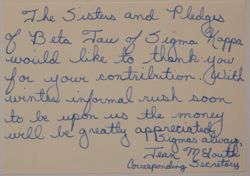 The Sisters and Pledges
of Beta Tau of Sigma Kappa
would like to thank you
for your contribution. With
winter informal rush soon
to be upon us the money
will be greatly appreciated.
Sigmas always,
Jean
Corresponding Secretary